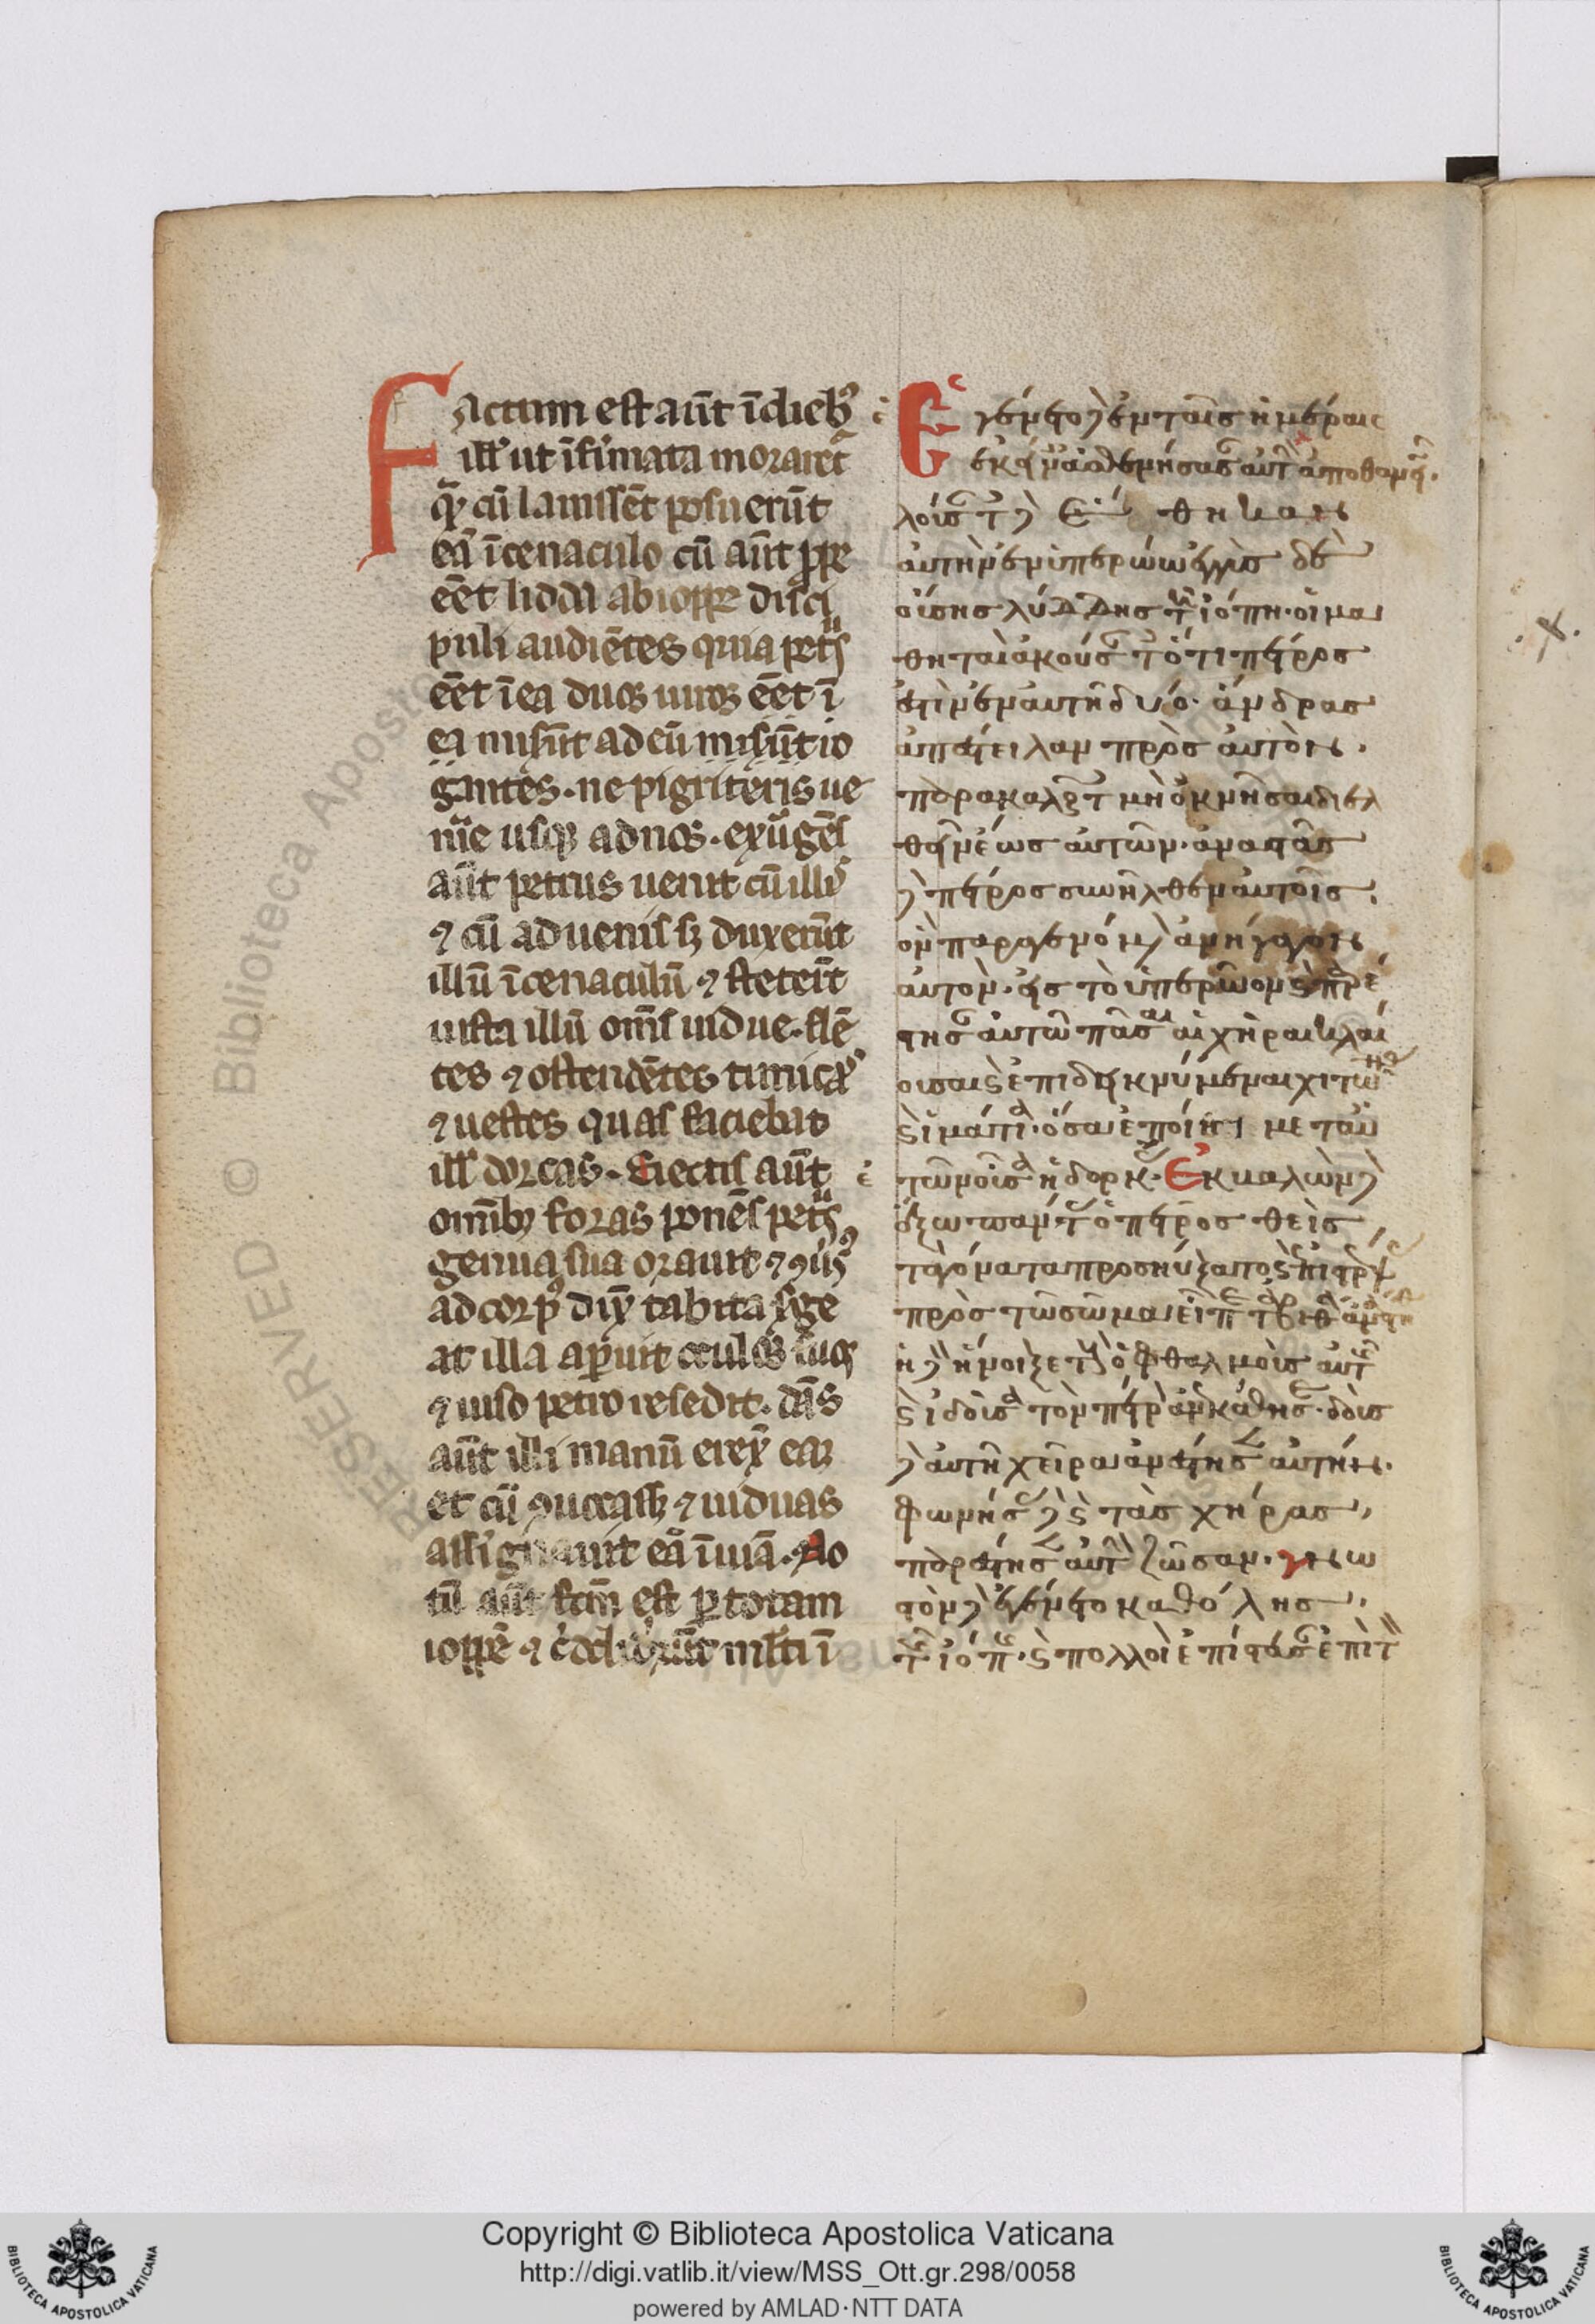 Factum est aūt ī dieb᾽
ill᾽ ut īfirmata moraret᷒
q̄ cū lauissēt posuerūt
eā ī cenaculo cū aūt ꝓpe
eēt lidda ab ioppe disci
puli audiētes quia pet᷒s
eēt ī ea duos uiros eēt ī
ea misūt ad eū misūt ro
gantes · ne pigriteris ue
nire usq₃ ad nos · exurgēs
aūt petrus uenit cū illis
⁊ cū aduenisꝫ duxerūt
illū ī cenaculū ⁊ steterūt
iuxta illū om̄s uidue · flē
tes ⁊ ostendētes tunicas
⁊ uestes quas faciebat
ill᾽ dorcas · Eiectis aūt
omībꝫ foras ponēs pet᷒s
genua sua orauit ⁊
ad corp᾽ dix̄ tabita surge
at illa aperuit oculos suos
⁊ uiso petro resedit · dās
aūt illi manū erex̄ eam
et cū uocasꝫ ⁊ uiduas
assignauit eā uiuā · No
tū aūt fcm̄ est ꝑ totam
ioppē ⁊ mlti ī
Ἐγένετο δὲ ἐν ταῖς ἡμέραις
ἀποθαν
λούσ θηκαν
αὐτὴν ἐν ὑπερώω ἐγγὺς δὲ
οὔσης λύδδης τῇ ἰόπη · οἱ μα
θηταὶ ἀκούσ ὅτι πέτρος
ἐστὶν ἐν αυτῆ δύο · ἄνδρας
ἀπέστειλαν πρὸς αὐτὸν ·
παρακαλ μὴ ὀκνῆσαι διελ
θεῖν ἕως αὐτῶν · ἀναστὰς
δὲ πέτρος συνῆλθεν αὐτοῖς ·
ὃν παραγενόμ ἀνήγαγον
αὐτὸν · εἰς τὸ ὑπερῶον ϛ παρέ
στησ αὐτῶ πᾶσαι αἱ χῆραι κλαί
ουσαι ϛ ἐπιδεικνύμεναι χιτῶν
ϛ ἱμάτια · ὅσα ἐποίει με ταυ
τῶν οὖσα ἡ δορκ · Ἐκβαλὼν δὲ
ἔξω πάντ ὁ πέτρος θεὶς
τὰ γόνατα προσηύξατο ϛ ἐπιστρ
πρὸς τὼ σῶμα εἶπε
ἡ δὲ ἤνοιξε τ ὀφθαλμοὺς αὐτ
ϛ ἰδοῦσα τὸν πέτρ ἀνεκάθησε · δοὺς
δὲ αυτῆ χεῖρα ἀνέστησ αὐτήν ·
φωνήσ δὲ ϛ τὰς χήρας ·
παρέστησ αὐτ ζῶσαν · γνω
στὸν δὲ ἐγένετο καθόλης ·
τ ἰόπ · ϛ πολλοὶ ἐπίστευσ ἐπὶ τ
RESERVED © Biblioteca Apostolica Vaticana
Copyright © Biblioteca Apostolica Vaticana
http://digi.vatlib.it/view/MSS_Ott.gr.298/0058
powered by AMLAD·NTT DATA
BIBLIOTECA APOSTOLICA VATICANA
BIBLIOTECA APOSTOLICA VATICANA